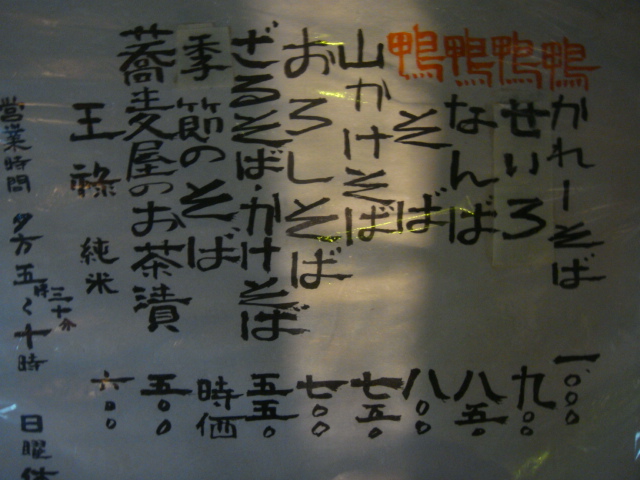 鴨かれーそば 一、〇〇〇
鴨せいろ 九〇〇
鴨なんば 八五〇
鴨そば 八〇〇
山かけそば 七五〇
おろしそば 七〇〇
ざるそば・かけそば 五五〇
季節のそば 時価
蕎麦屋のお茶漬 五〇〇
王祿 純米 六〇〇
営業時間 夕方五時三十分〜十時 日曜休